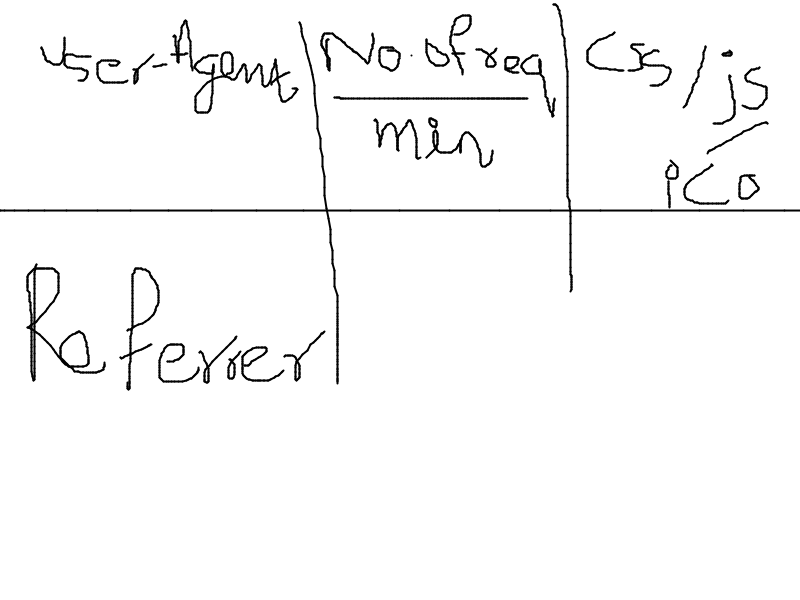 User-Agent
No. of req
min
css/js
ico
Referrer